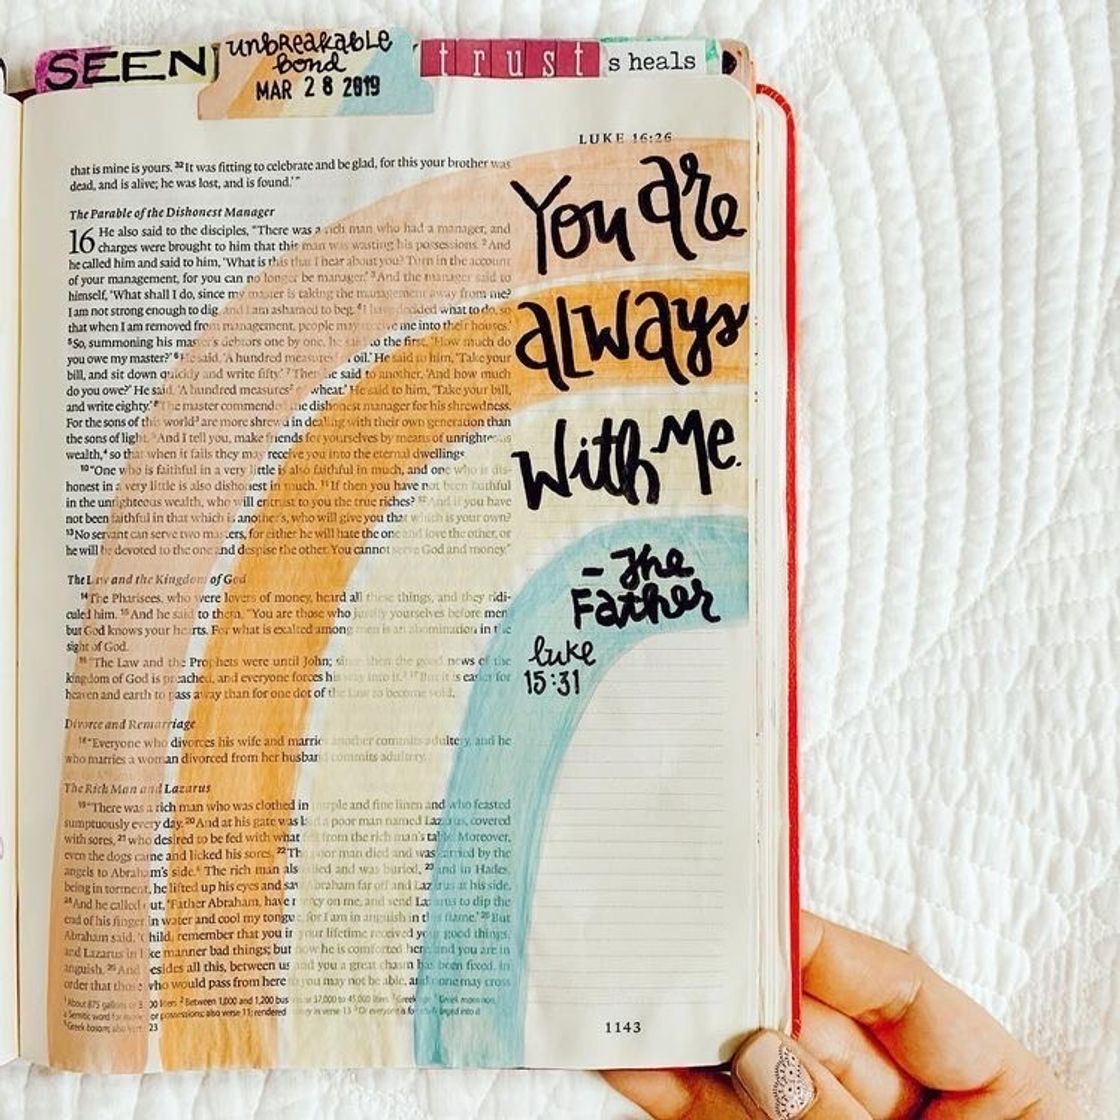 SEEN
unbreakable
bond
MAR 28 2019
trust
s heals
LUKE 16:26
that is mine is yours. 32 It was fitting to celebrate and be glad, for this your brother was
dead, and is alive; he was lost, and is found.'"
The Parable of the Dishonest Manager
16 He also said to the disciples, "There was a rich man who had a manager, and
charges were brought to him that this man was wasting his possessions. 2 And
he called him and said to him, 'What is this that I hear about you? Turn in the account
of your management, for you can no longer be manager.' 3 And the manager said to
himself, 'What shall I do, since my master is taking the management away from me?
I am not strong enough to dig, and I am ashamed to beg. 4 I have decided what to do, so
that when I am removed from management, people may receive me into their houses.'
5 So, summoning his master's debtors one by one, he said to the first, 'How much do
you owe my master?' 6 He said, 'A hundred measures of oil.' He said to him, 'Take your
bill, and sit down quickly and write fifty.' 7 Then he said to another, 'And how much
do you owe?' He said, 'A hundred measures of wheat.' He said to him, 'Take your bill,
and write eighty.' 8 The master commended the dishonest manager for his shrewdness.
For the sons of this world are more shrewd in dealing with their own generation than
the sons of light. 9 And I tell you, make friends for yourselves by means of unrighteous
wealth, so that when it fails they may receive you into the eternal dwellings.
10 "One who is faithful in a very little is also faithful in much, and one who is dis-
honest in a very little is also dishonest in much. 11 If then you have not been faithful
in the unrighteous wealth, who will entrust to you the true riches? 12 And if you have
not been faithful in that which is another's, who will give you that which is your own?
13 No servant can serve two masters, for either he will hate the one and love the other, or
he will be devoted to the one and despise the other. You cannot serve God and money."
The Law and the Kingdom of God
14 The Pharisees, who were lovers of money, heard all these things, and they ridi-
culed him. 15 And he said to them, "You are those who justify yourselves before men,
but God knows your hearts. For what is exalted among men is an abomination in the
sight of God.
16 "The Law and the Prophets were until John; since then the good news of the
kingdom of God is preached, and everyone forces his way into it. 17 But it is easier for
heaven and earth to pass away than for one dot of the Law to become void.
Divorce and Remarriage
18 "Everyone who divorces his wife and marries another commits adultery, and he
who marries a woman divorced from her husband commits adultery.
The Rich Man and Lazarus
19 "There was a rich man who was clothed in purple and fine linen and who feasted
sumptuously every day. 20 And at his gate was laid a poor man named Lazarus, covered
with sores, 21 who desired to be fed with what fell from the rich man's table. Moreover,
even the dogs came and licked his sores. 22 The poor man died and was carried by the
angels to Abraham's side. The rich man also died and was buried, 23 and in Hades,
being in torment, he lifted up his eyes and saw Abraham far off and Lazarus at his side.
24 And he called out, 'Father Abraham, have mercy on me, and send Lazarus to dip the
end of his finger in water and cool my tongue, for I am in anguish in this flame.' 25 But
Abraham said, 'Child, remember that you in your lifetime received your good things,
and Lazarus in like manner bad things; but now he is comforted here, and you are in
anguish. 26 And besides all this, between us and you a great chasm has been fixed, in
order that those who would pass from here to you may not be able, and none may cross
1 About 875 gallons 2 Between 1,000 and 1,200 37,000 to 45,000 liters 3 Greek
a Semitic word for or possessions; also verse 11; rendered in verse 13
Greek bosom; also 23
You are
always
with me.
- The
Father
luke
15:31
1143